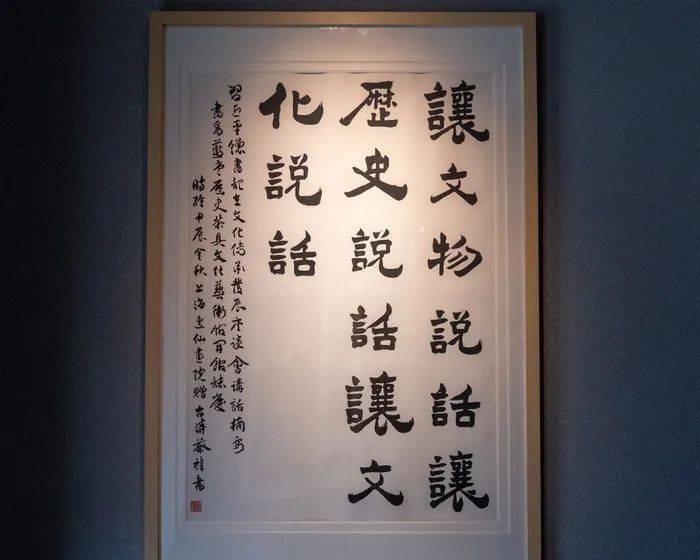 讓文物說話讓
歷史說話讓文
化說話
習近平總書記在文化傳承發展座談會講話摘句
書為藍堂歷史茶具文化藝術館開館誌慶
時維甲辰金秋上海逸仙畫院贈 古滬蔡樟書